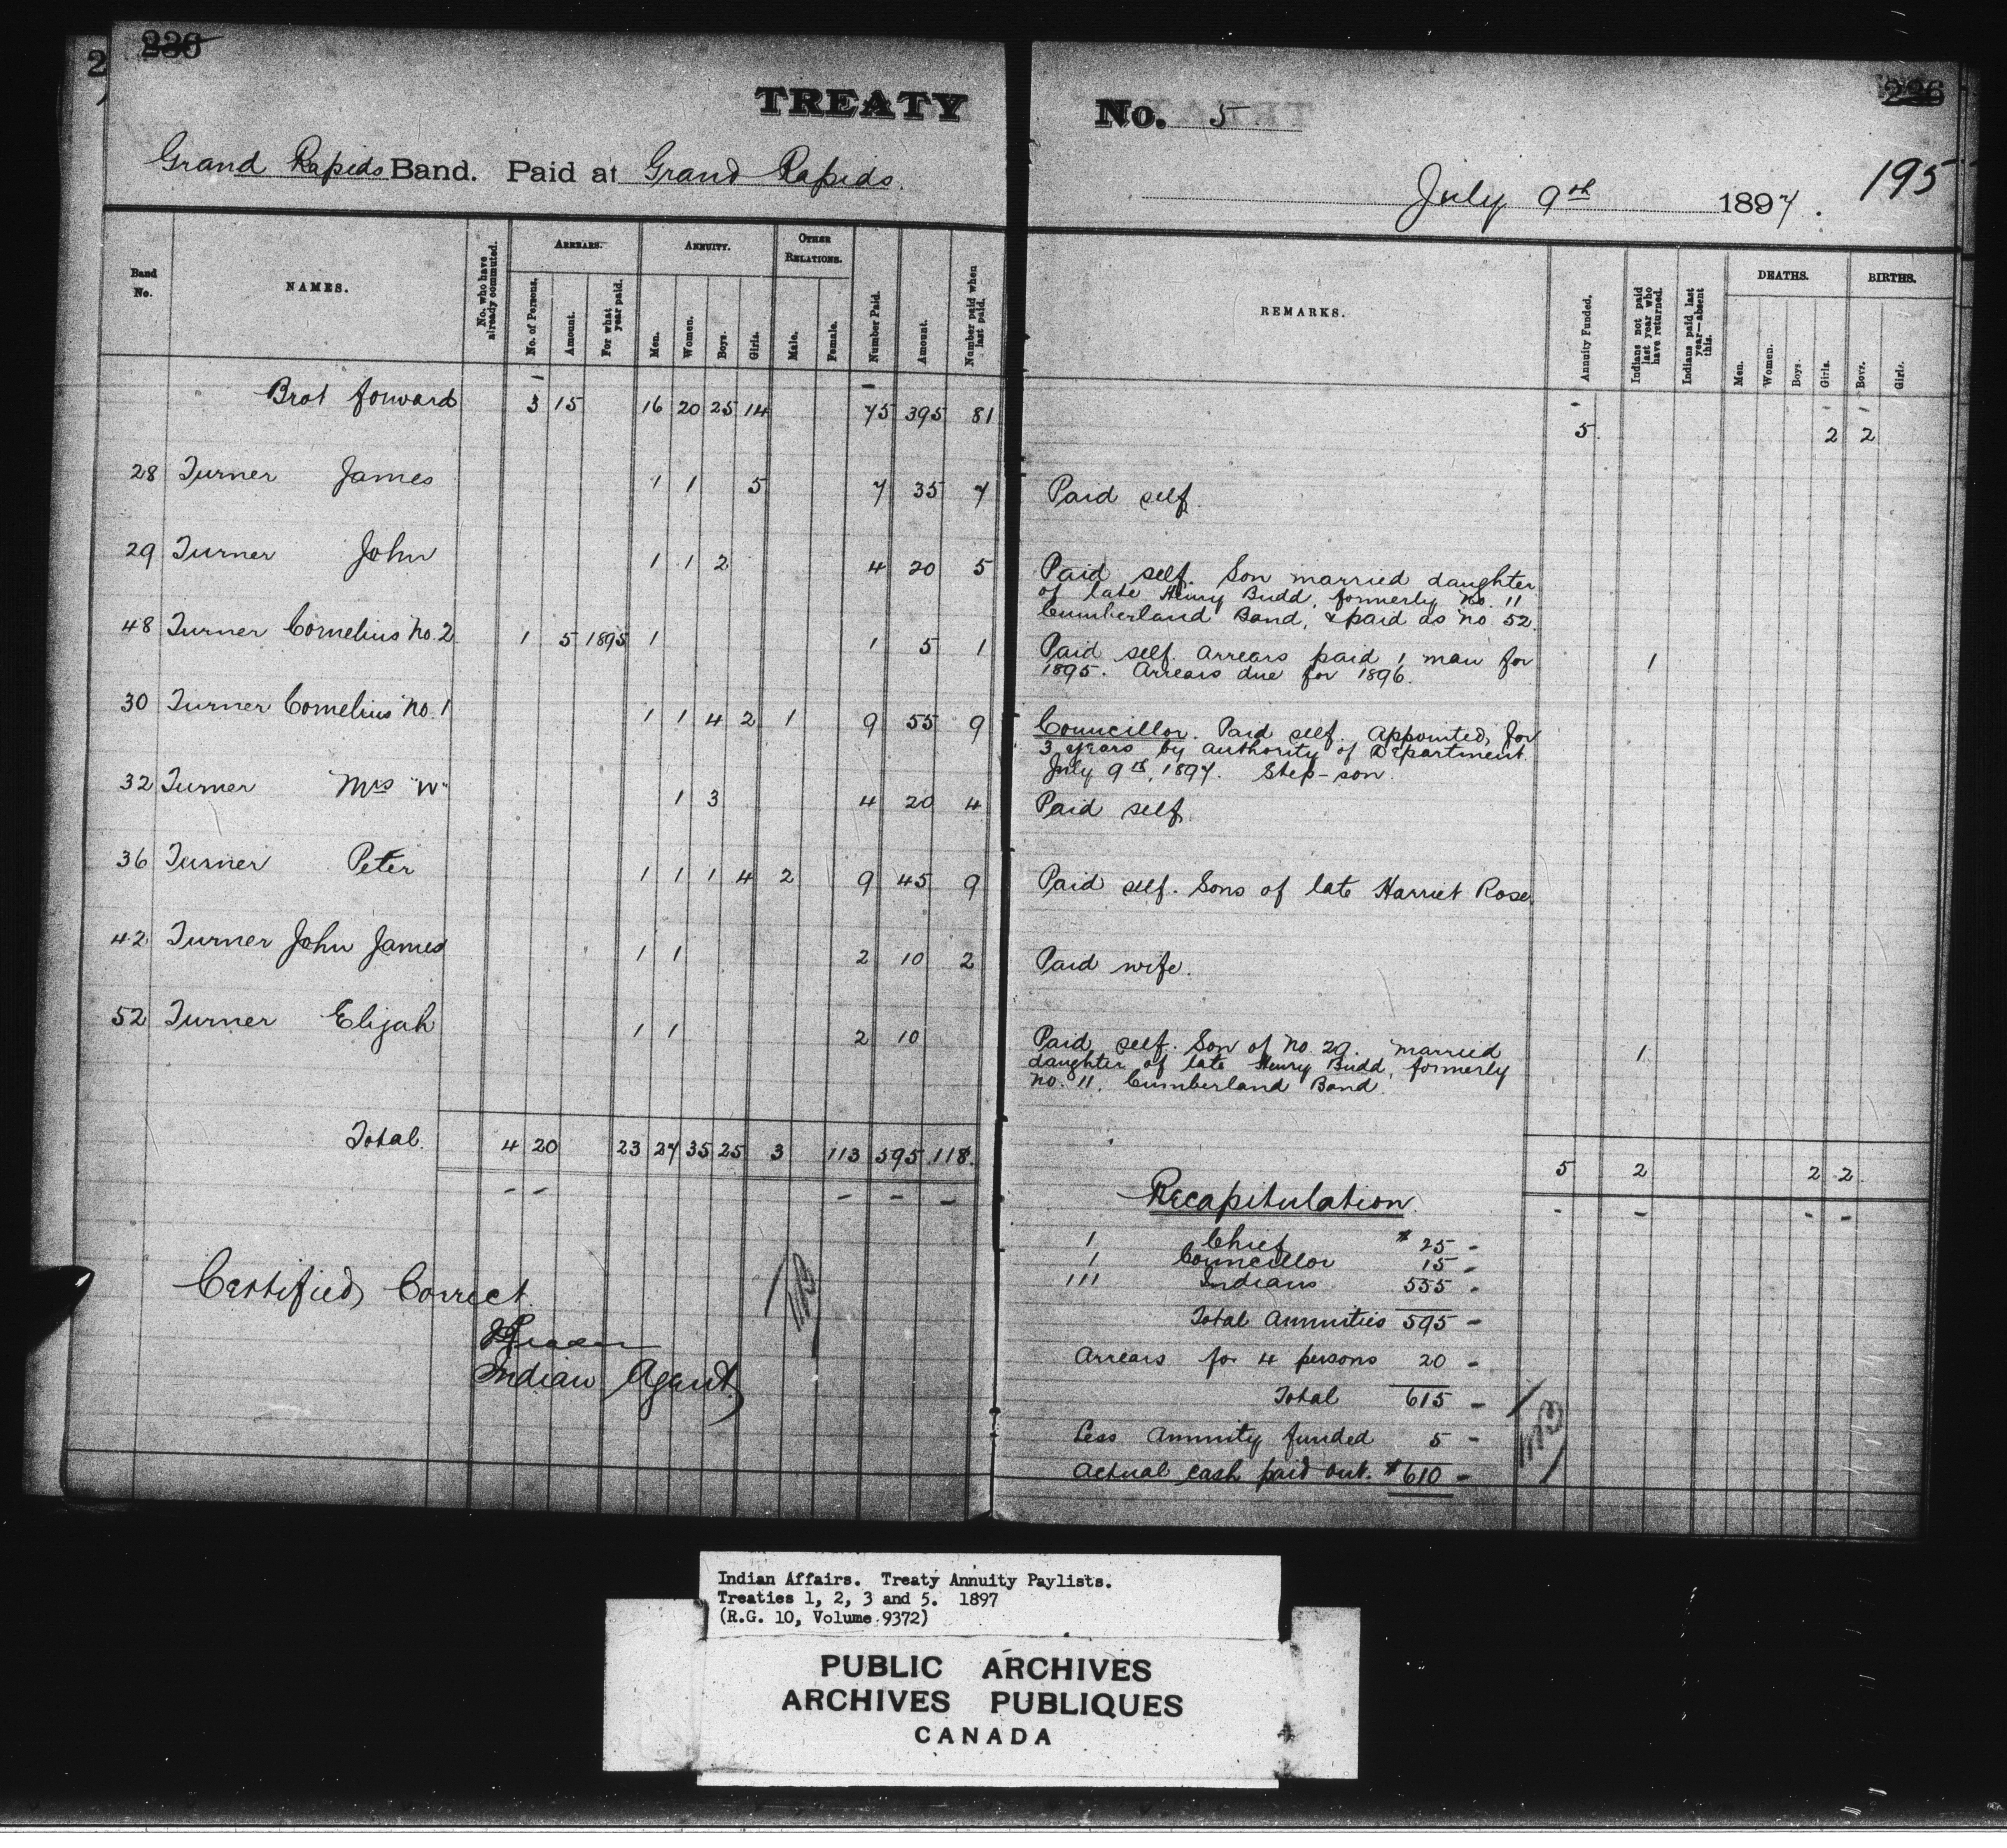 236
TREATY No. 5
236
195
Grand Rapids Band. Paid at Grand Rapids. July 9th 1897.
Band No. NAMES. No. who have already commuted. ARREARS. No. of Persons. Amount. For what year paid. ANNUITY. Men. Women. Boys. Girls. OTHER RELATIONS. Male. Female. Number Paid. Amount. Number paid when last paid. REMARKS. Annuity Funded. Indians not paid last year who have returned. Indians paid last year—absent this. DEATHS. Men. Women. Boys. Girls. BIRTHS. Boys. Girls.
Brot forward 3 15 16 20 25 14 75 395 81 5 2 2
28 Turner James 1 1 5 7 35 7 Paid self.
29 Turner John 1 1 2 4 20 5 Paid self. Son married daughter
of late Henry Budd, formerly No. 11
Cumberland Band, & paid as No 52.
48 Turner Cornelius No. 2 1 5 1895 1 1 5 1 Paid self. Arrears paid 1 man for 1
1895. Arrears due for 1896.
30 Turner Cornelius No. 1 1 1 4 2 1 9 55 9 Councillor. Paid self. Appointed for
3 years by authority of Department
July 9th, 1897. Step-son.
32 Turner Mrs "W" 1 3 4 20 4 Paid self.
36 Turner Peter 1 1 1 4 2 9 45 9 Paid self. Sons of late Harriet Rose
42 Turner John James 1 1 2 10 2 Paid wife.
52 Turner Elijah 1 1 2 10 Paid self. Son of No. 29. married 1
daughter of late Henry Budd, formerly
No. 11. Cumberland Band.
Total. 4 20 23 27 35 25 3 113 595 118. 5 2 2 2
Recapitulation.
1 Chief $ 25 -
1 Councillor 15 -
111 Indians 555 -
Total Annuities 595 -
Arrears for 4 persons 20 -
Total 615 -
Less Annuity funded 5 -
Actual cash paid out. $ 610 -
Certified Correct
Indian Agent
Indian Affairs. Treaty Annuity Paylists.
Treaties 1, 2, 3 and 5. 1897
(R.G. 10, Volume 9372)
PUBLIC ARCHIVES
ARCHIVES PUBLIQUES
CANADA